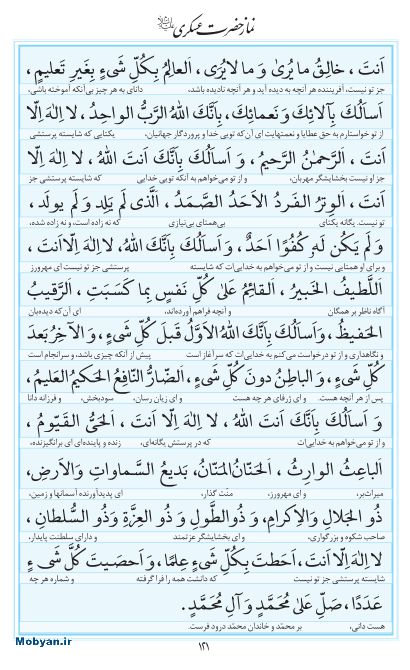 نماز حضرت عسکری علیه‌السلام
اَنتَ ، خالِقُ ما یُریٰ وَ ما لا یُرَی ، اَلعالِمُ بِکُلِّ شَیءٍ بِغَیرِ تَعلیمٍ ،
جز تو نیست، آفریننده هر آنچه به دیده آید و هر آنچه نادیده باشد، دانای به هر چیز بی‌آنکه آموخته باشی،
اَسأَلُکَ بِـآلائِکَ وَ نَعمائِکَ، بِاَنَّکَ اللّٰهُ الرَّبُّ الواحِدُ، لا اِلٰهَ اِلّا
از تو خواستارم به حق عطایا و نعمتهایت ای آن‌که تویی خدا و پروردگار جهانیان، یکتایی که شایسته پرستشی
اَنتَ ، اَلرَّحمٰنُ الرَّحیمُ ، وَ اَسأَلُکَ بِاَنَّکَ اَنتَ اللّٰهُ ، لا اِلٰهَ اِلّا
جز او نیست بخشایشگر مهربان، و از تو می‌خواهم به آنکه تویی خدایی که شایسته پرستشی جز
اَنتَ ، اَلوِترُ الفَردُ الاَحَدُ الصَّمَدُ ، اَلَّذی لَم یَلِد وَ لَم یولَد ،
تو نیست. یگانه یکتای بی‌همتای بی‌نیازی که نه زاده است، و نه زاده شده،
وَ لَم یَکُن لَهُ کُفُوًا اَحَدٌ، وَ اَسأَلُکَ بِاَنَّکَ اللّٰهُ، لا اِلٰهَ اِلّا اَنتَ ،
و برای او همتایی نیست و از تو می‌خواهم به خدایی‌ات که شایسته پرستشی جز تو نیست ای مهرورز
اَللَّطیفُ الخَبیرُ ، اَلقائِمُ عَلیٰ کُلِّ نَفسٍ بِما کَسَبَت ، اَلرَّقیبُ
آگاه ناظر بر همگان و آنچه فراهم آورده‌اند، ای آن که دیده‌بان
الحَفیظُ ، وَ اَسأَلُکَ بِاَنَّکَ اللّٰهُ الاَوَّلُ قَبلَ کُلِّ شَیءٍ ، وَ الآخِرُ بَعدَ
و نگاهداری و از تو درخواست می‌کنم به خدایی‌ات که سرآغاز است پیش از آنکه چیزی باشد، و سرانجام است
کُلِّ شَیءٍ ، وَ الباطِنُ دونَ کُلِّ شَیءٍ، اَلضّارُّ النّافِعُ الحَکیمُ العَلیمُ ،
پس از هر آنچه هست. و ای ژرفای هر چه هست و ای زیان رسان، سودبخش، و فرزانه دانا
وَ اَسأَلُکَ بِاَنَّکَ اَنتَ اللّٰهُ ، لا اِلٰهَ اِلّا اَنتَ ، اَلحَیُّ القَیّومُ ،
و از تو می‌خواهم به خدایی‌ات که در پرستش یگانه‌ای، زنده و پاینده‌ای ای برانگیزنده،
اَلباعِثُ الوارِثُ ، اَلحَنّانُ المَنّانُ، بَدیعُ السَّماواتِ وَ الاَرضِ،
میراث‌بر، و ای مهرورز، منّت گذار، ای پدیدآورنده آسمانها و زمین،
ذُو الجَلالِ وَ الاِکرامِ، وَ ذُو الطَّولِ وَ ذُو العِزَّةِ وَ ذُو السُّلطانِ ،
صاحب شکوه و بزرگواری، و ای بخشایشگر عزتمند و دارای سلطنت پایدار،
لا اِلٰهَ اِلّا اَنتَ، اَحَطتَ بِکُلِّ شَیءٍ عِلمًا، وَ اَحصَیتَ کُلَّ شَیءٍ
شایسته پرستشی جز تو نیست که دانشت همه را فرا گرفته و شماره هر چه
عَدَدًا ، صَلِّ عَلیٰ مُحَمَّدٍ وَ آلِ مُحَمَّدٍ .
هست دانی، بر محمّد و خاندان محمّد درود فرست.
۱۲۱
Mobyan.ir